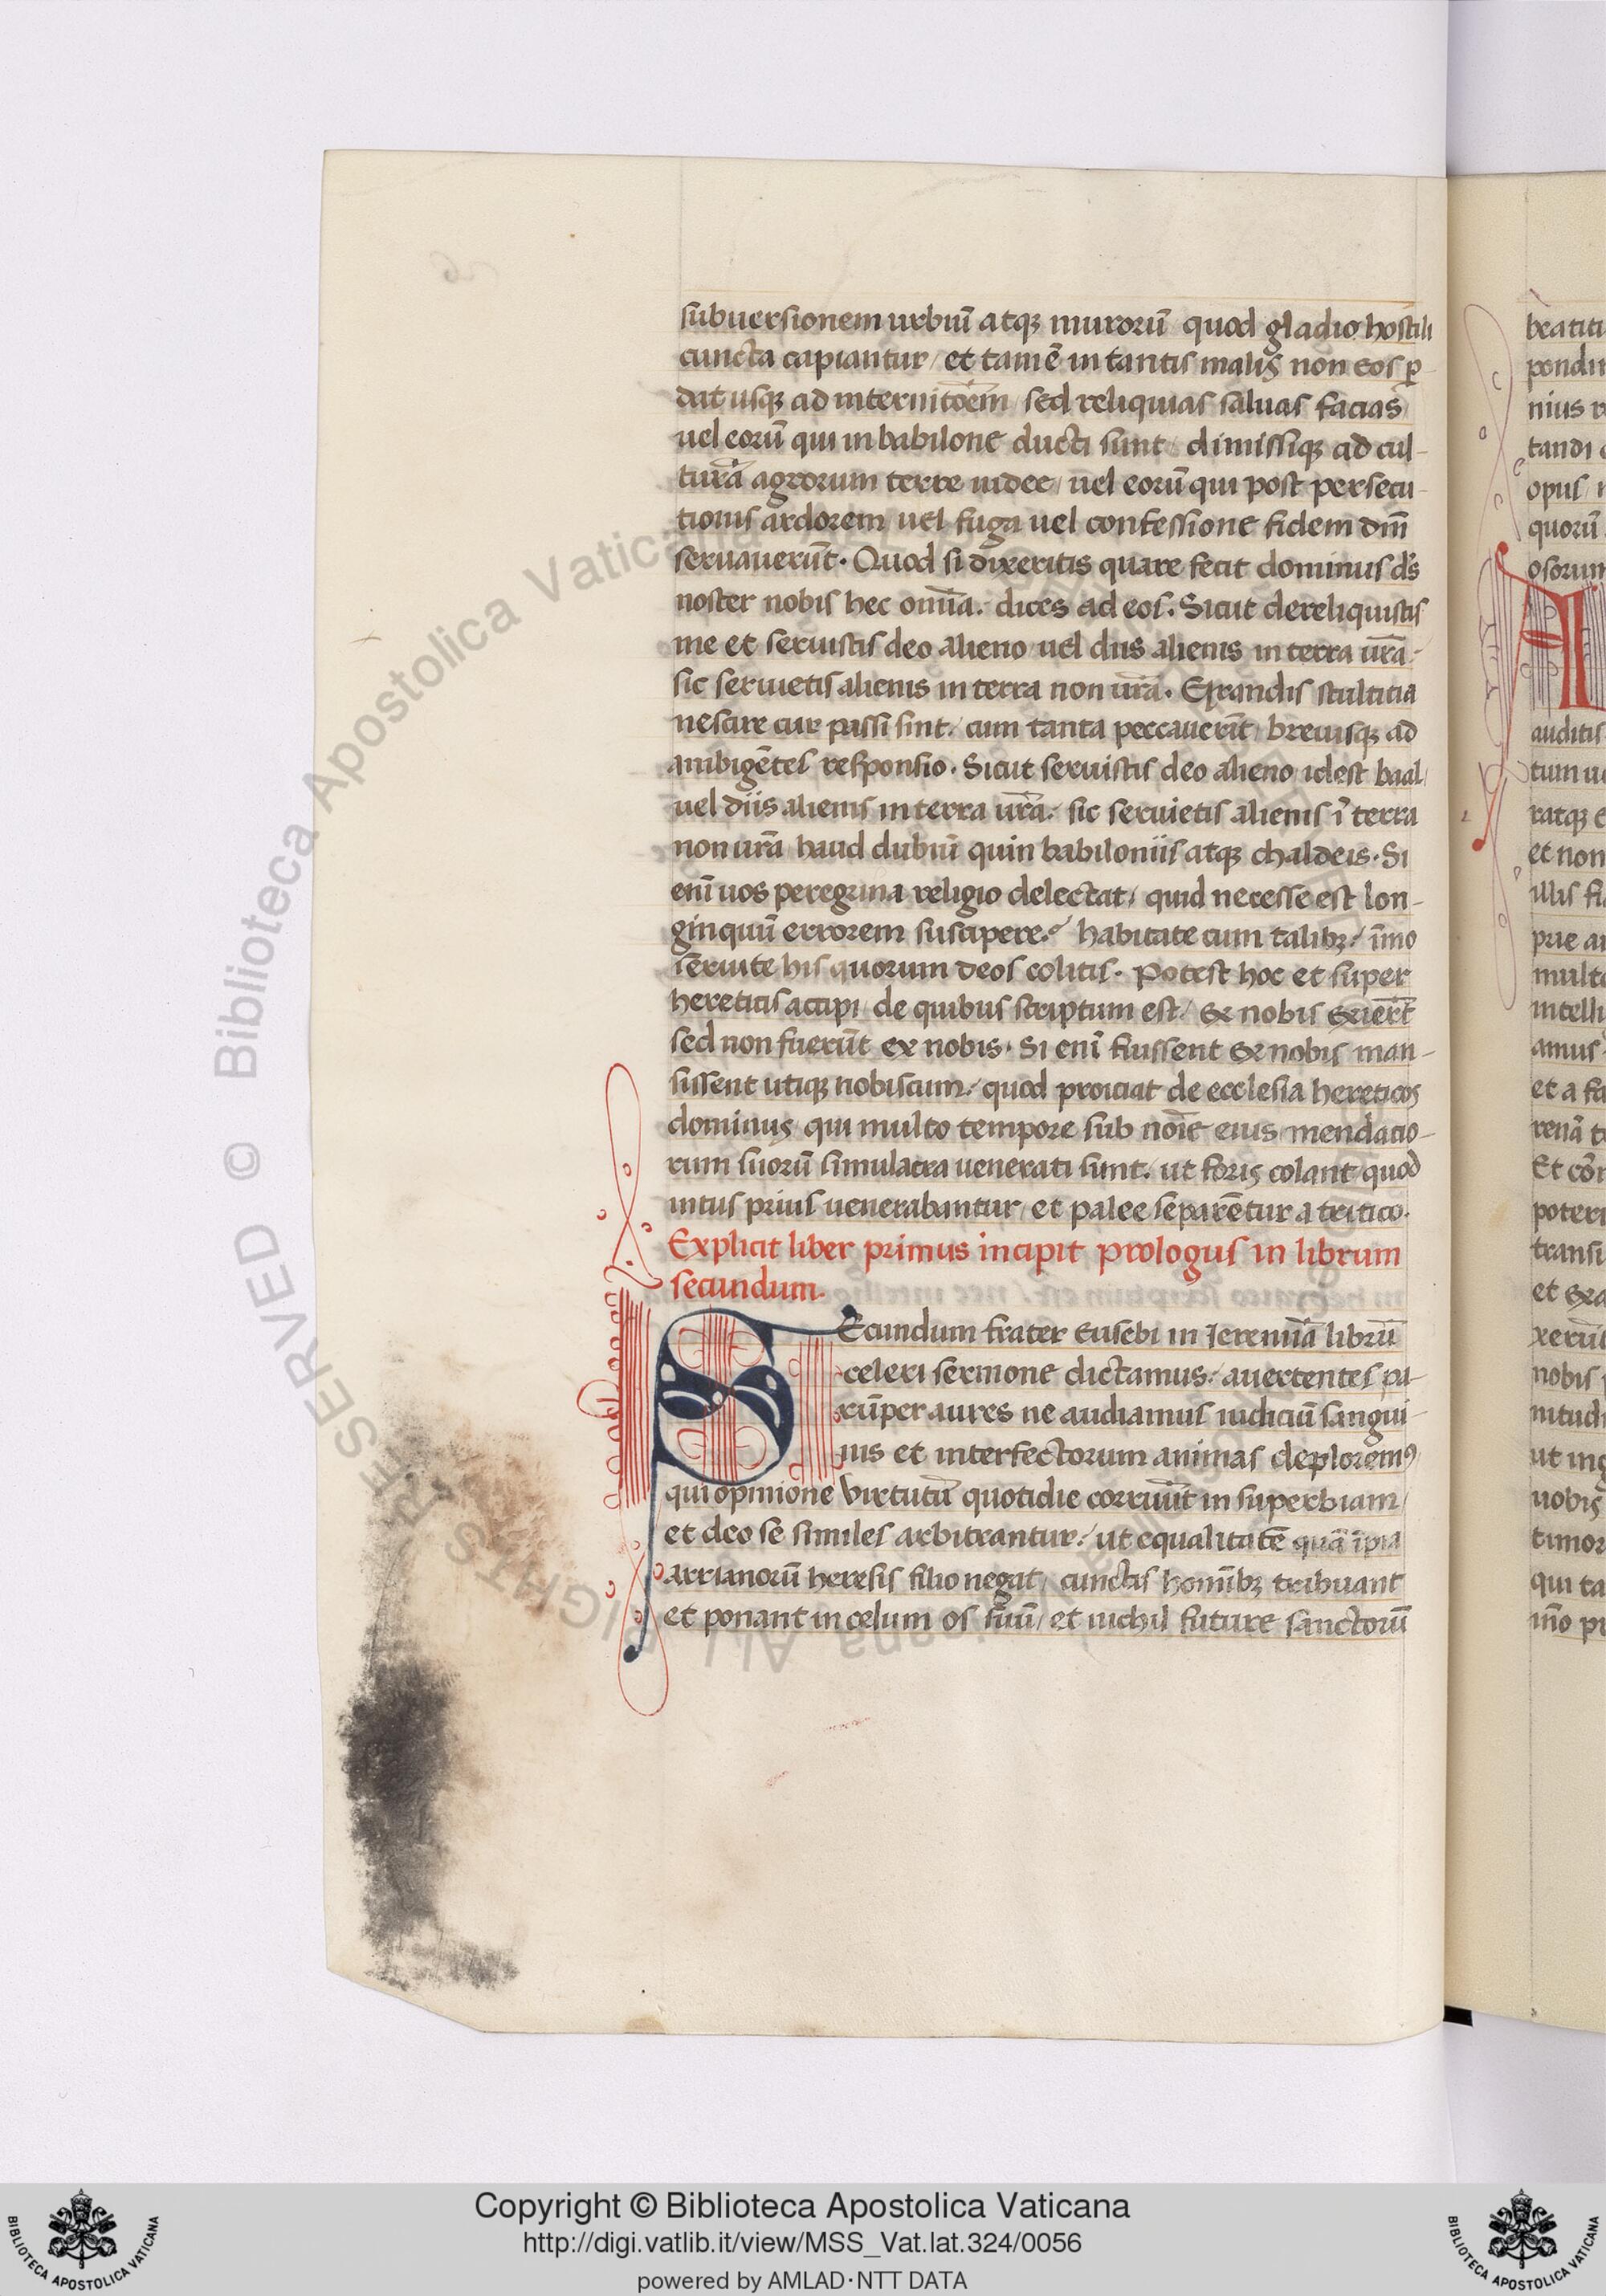 subuersionem urbiū atqꝫ murorū quod gladio hostili
cuncta capiantur / et tamē in tantis malis non eos ꝑ-
dat usqꝫ ad internitōem / sed reliquias saluas facias /
uel eorū qui in babilone ducti sunt / dimissiqꝫ ad cul-
turā agrorum terre iudee / uel eorū qui post persecu-
tionis ardorem uel fuga uel confessione fidem dn̄i
seruauerūt. Quod si dixeritis quare fecit dominus ds̄
noster nobis hec omīa. dices ad eos. Sicut dereliquistis
me et seruistis deo alieno uel diis alienis in terra ur̄a:
sic seruietis alienis in terra non ur̄a. Grandis stultitia
nescire cur passi sint / cum tanta peccauerīt / breuisqꝫ ad
ambigētes responsio. Sicut seruistis deo alieno idest baal /
uel diis alienis in terra ur̄a / sic seruietis alienis ī terra
non ur̄a haud dubiū quin babiloniis atqꝫ chaldeis. Si
enī uos peregrina religio delectat / quid necesse est lon-
ginquū errorem suscipere / habitate cum talibꝫ / īmo
seruite his quorum deos colitis. Potest hoc et super
hereticis accipi / de quibus scriptum est / Ex nobis exier̄t
sed non fuerūt ex nobis. Si enī fuissent ex nobis man-
sissent utiqꝫ nobiscum / quod proiciat de ecclesia hereticos
dominus qui multo tempore sub noīe eius mendacio-
rum suorū simulacra uenerati sunt / ut foris colant quod
intus prius uenerabantur / et palee separētur a tritico.
Explicit liber primus incipit prologus in librum
secundum.
SEcundum frater Eusebi in Ieremiā librū
celeri sermone dictamus / auertentes pa-
rūper aures ne audiamus iudiciū sangui-
nis et interfectorum animas deploremꝰ
qui opinione virtutū quotidie corruūt in superbiam /
et deo se similes arbitrantur / ut equalitatē quā īpia
arrianorū heresis filio negat / cunctis homībꝫ tribuant
et ponant in celum os suū / et nichil future sanctorū
beatitu
pondu
nius
tandi
opus
quorū
osorum
A
auditis
tum
ratqꝫ
et non
illis
multo
intelli
amus
et a fa
Et cōn
poteri
transi
et exa
xerūt
nobis
ut ing
uobis
timor
qui ta
īmo pr
Copyright © Biblioteca Apostolica Vaticana
http://digi.vatlib.it/view/MSS_Vat.lat.324/0056
powered by AMLAD·NTT DATA
BIBLIOTECA APOSTOLICA VATICANA
BIBLIOTECA APOSTOLICA VATICANA